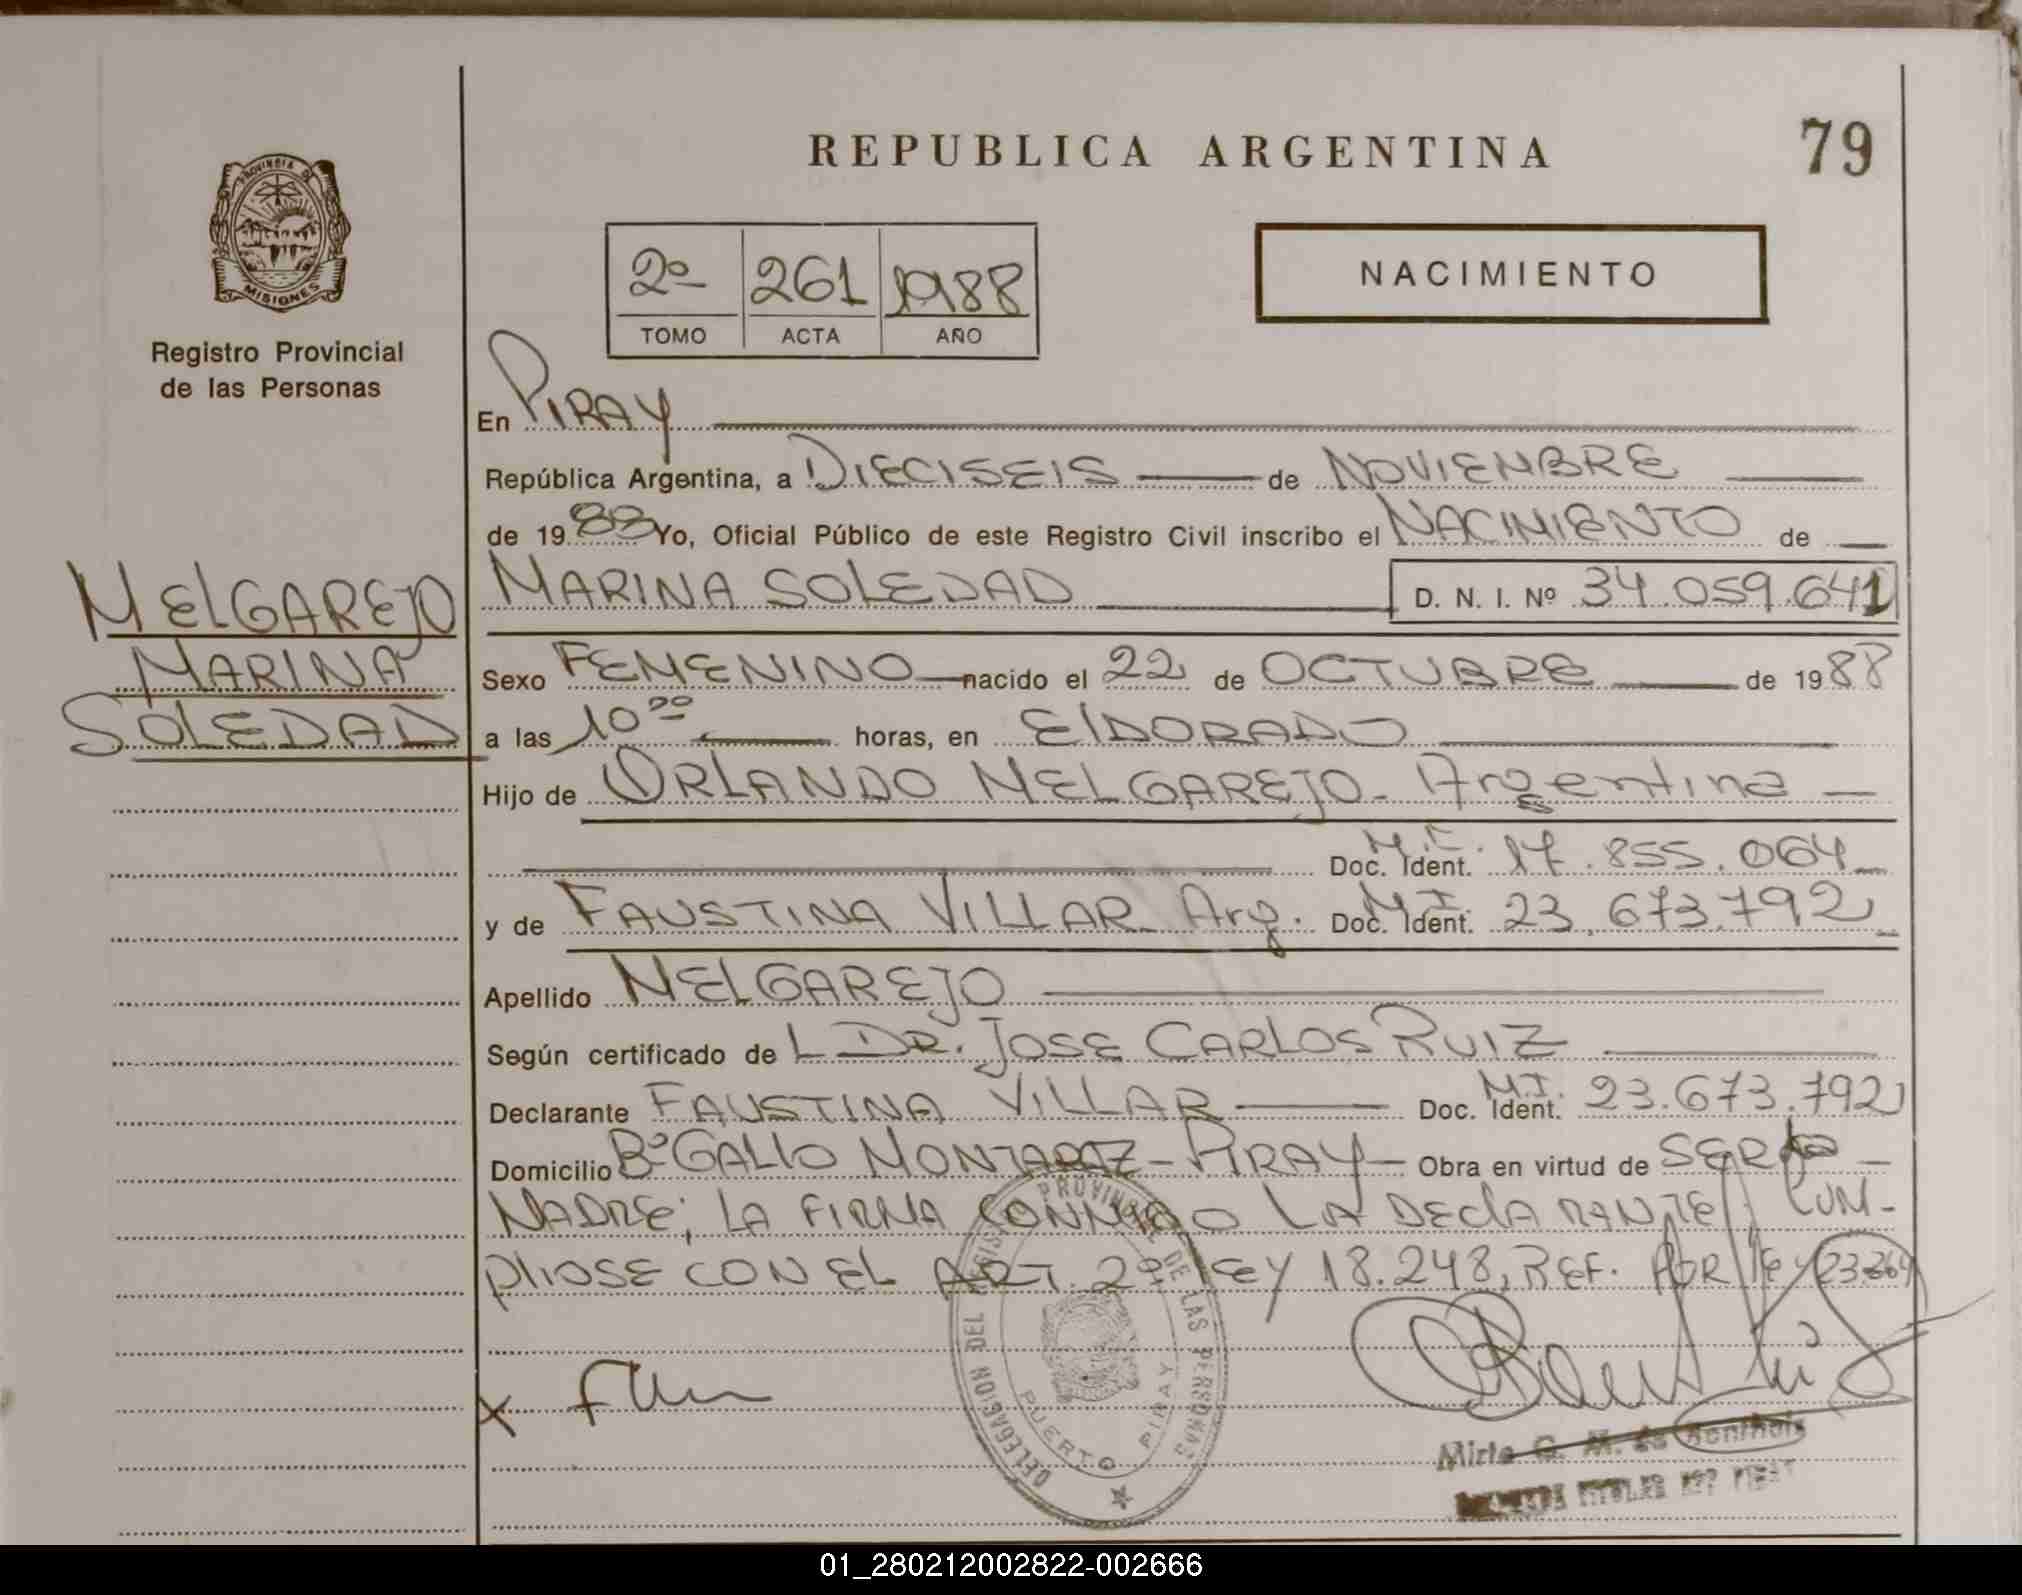 REPUBLICA ARGENTINA
79
PROVINCIA DE
MISIONES
Registro Provincial
de las Personas
2º 261 1988
TOMO ACTA AÑO
NACIMIENTO
En PIRAY
República Argentina, a DIECISEIS de NOVIEMBRE
de 1988 Yo, Oficial Público de este Registro Civil inscribo el NACIMIENTO de
MELGAREJO
MARINA
SOLEDAD
MARINA SOLEDAD D. N. I. Nº 34.059.641
Sexo FEMENINO nacido el 22 de OCTUBRE de 1988
a las 10 00 horas, en ElDORADO
Hijo de ORLANDO MELGAREJO - Argentina
Doc. Ident. M.I. 17.855.064
y de FAUSTINA VILLAR Arg. Doc. Ident. M.I. 23.673.792
Apellido MELGAREJO
Según certificado de L DR. JOSE CARLOS RUIZ
Declarante FAUSTINA VILLAR Doc. Ident. M.I. 23.673.792
Domicilio Bº GALLO MONTARAZ - PIRAY - Obra en virtud de SER LA
MADRE; LA FIRMA CONMIGO LA DEClARANTE CUM-
pliOSE CON EL ART. 2º lEY 18.248, REF. POR lEY 23.264
DELEGACION DEL REGISTRO PROVINCIAL DE LAS PERSONAS
PUERTO PIRAY
X
Mirta G. M. de
01_280212002822-002666